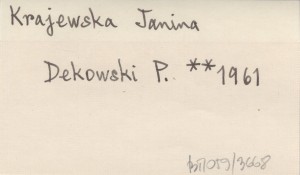 Krajewska Janina
Dekowski P. **1961
BI/059/3668